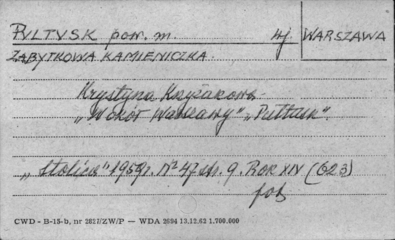 PUŁTUSK pow. m. 4j WARSZAWA
ZABYTKOWA KAMIENICZKA
Krystyna Kryżakowa
"Wokół Warszawy" "Pułtusk".
"Stolica" 1959r. Nº 47 str. 9. Rok XIV (623)
fot
CWD - B-15-b, nr 2827/ZW/P — WDA 2694 13.12.62 1.700.000